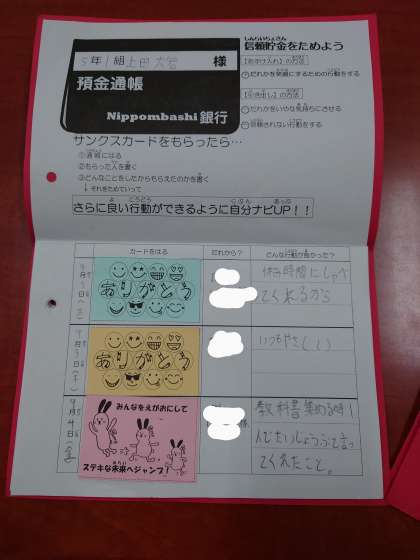 5年1組上田大宮 様
預金通帳
Nippombashi 銀行
信頼貯金をためよう
【お手け入れ】の方法
だれかを笑顔にするための行動をする
【引き出し】の方法
だれかをいやな気持ちにさせる
信頼されない行動をする
サンクスカードをもらったら…
①通帳にはる
②もらった人を書く
③どんなことをしたからもらえたのかを書く
それをためていって
さらに良い行動ができるように自分ナビUP！！
カードをはる
だれから？
どんな行動が良かった？
ありがとう
休み時間にしゃべ
てくれるから
9月3日(木)
ありがとう
いつもやさしい
9月4日(金)
みんなをえがおにして
ステキな未来へジャンプ！
様
教科書集める時！
人でもいじょうぶって言っ
てくれたこと。